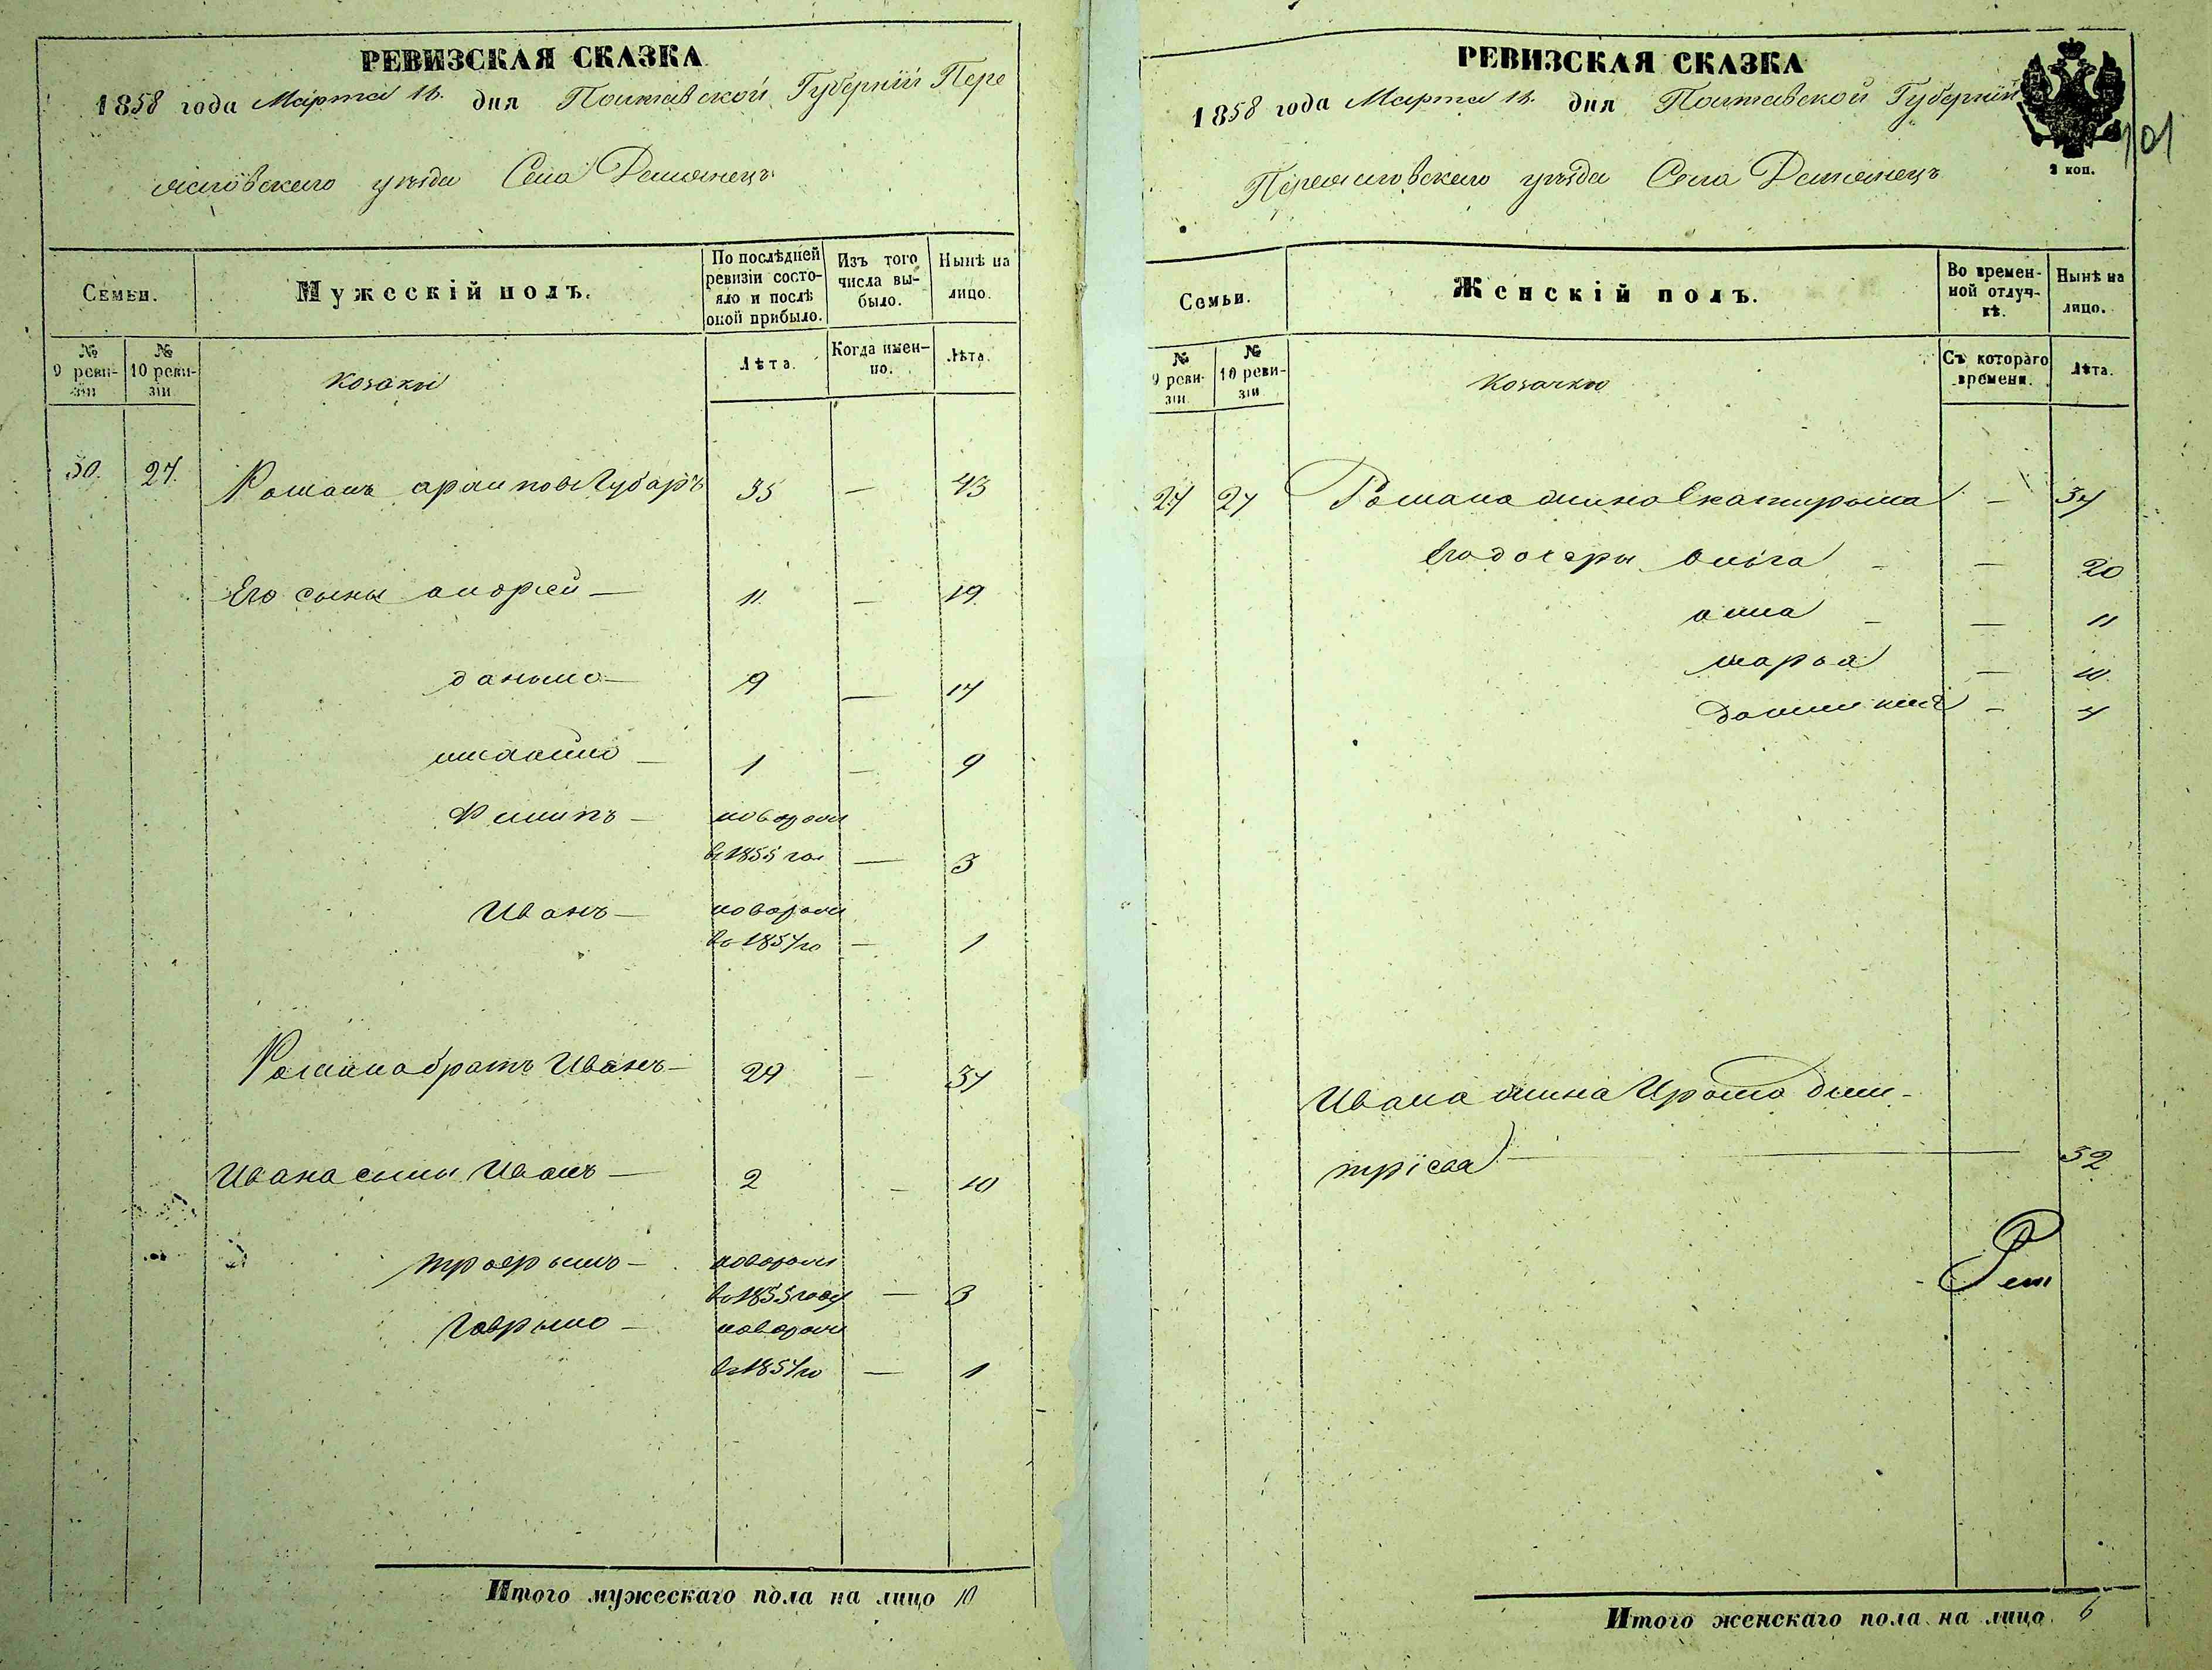 РЕВИЗСКАЯ СКАЗКА
1858 года Марта 18. дня Полтавской Губернїй Пере
яславского уѣзда Села Демянецъ
Семьи.
Мужескій полъ.
По послѣдней ревизіи состояло и послѣ оной прибыло.
Изъ того числа выбыло.
Нынѣ на лицо.
№ 9 ревизіи
№ 10 ревизіи
козаки
Лѣта.
Когда именно.
Лѣта.
30. 27. Романъ Губаръ 35 — 43
Его сыны андрей — 11. — 19.
данило — 9 — 17
михайло — 1 — 9
Филипъ — новорожд
въ 1855 год — 3
Иванъ — новорожд
въ 1857 го — 1
Романа братъ Иванъ — 29 — 37
Ивана сыны Иванъ — 2 — 10
трофымъ — новорожд
въ 1855 году — 3
Гаврыло — новорожд
въ 1857 го — 1
Итого мужескаго пола на лицо 10
РЕВИЗСКАЯ СКАЗКА
1858 года Марта 18. дня Полтавской Губернїй
101
2 коп.
Переяславского уѣзда Села Демянецъ
Семьи.
Женскій полъ.
Во временной отлучкѣ.
Нынѣ на лицо.
№ 9 ревизіи
№ 10 ревизіи
козачки
Съ котораго времени.
Лѣта.
27 27 Романа жина Екатирына — 37
Его дочери Ольга — — 20
анна — — 11
марья — 10.
Домникия — 7
Ивана жина Ирына дми-
трїева — 32
Итого женскаго пола на лицо 6